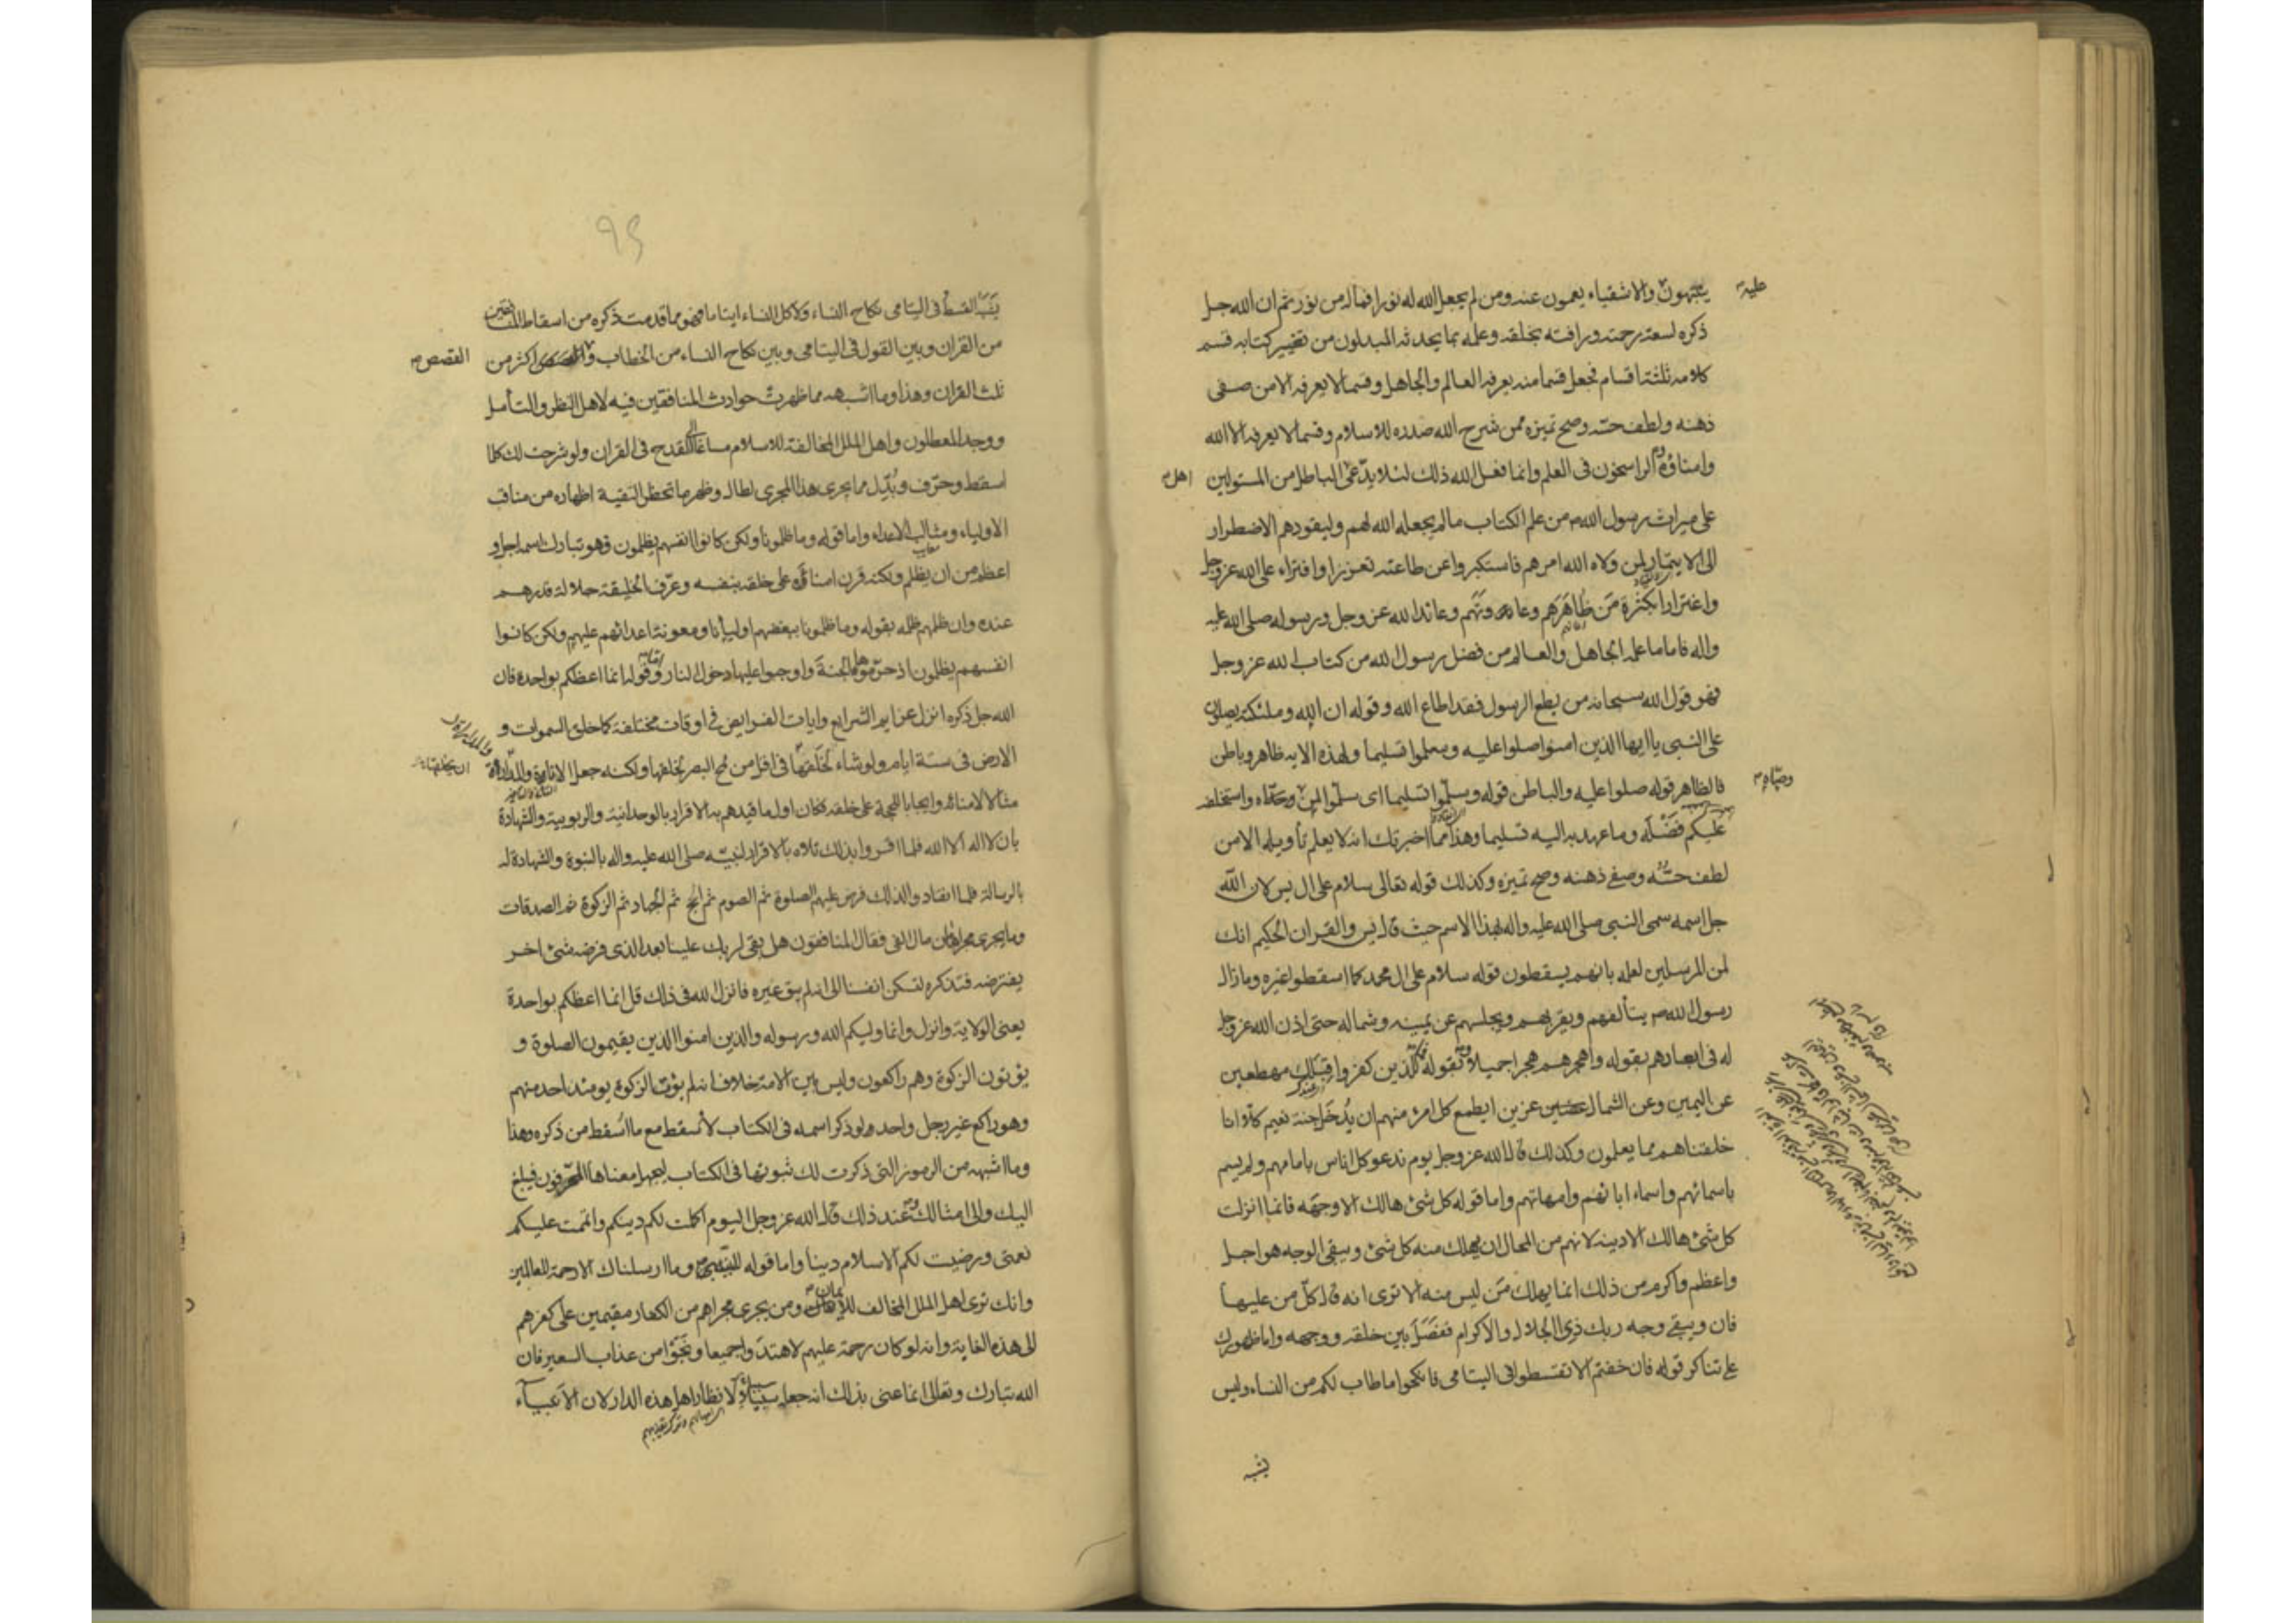 علية
ينبهون والاشقياء يعمون عنه ومن لم يجعل الله له نورا فماله من نور ثم ان الله جل
ذكره لسعة رحمته ورافته بخلقه وعلمه بما يحدثه المبدلون من تغيير كتابه قسم
كلامه ثلثة اقسام فجعل قسما منه يعرفه العالم والجاهل وقسما لا يعرفه الا من صفى
ذهنه ولطف حسه وصح تميزه ممن شرح الله صدره للاسلام وقسما لا يعرفه الا الله
وامناؤه والراسخون في العلم وانما فعل الله ذلك لئلا يدعى الباطل من المستولين
اهل
على ميراث رسول الله ص من علم الكتاب مالم يجعله الله لهم وليقودهم الاضطرار
الى الايتمار لمن ولاه الله امرهم فاستكبروا عن طاعته تعززا وافتراء على الله عز وجل
واغترارا بكثرة من ظاهرهم وعاونهم وعاندا لله عز وجل ورسوله صلى الله عليه
واله فاما ما علمه الجاهل والعالم من فضل رسول الله من كتاب الله عز وجل
فهو قول الله سبحانه من يطع الرسول فقد اطاع الله وقوله ان الله وملئكته يصلون
على النبي يا ايها الذين امنوا صلوا عليه وسلموا تسليما ولهذه الاية ظاهر وباطن
فالظاهر قوله صلوا عليه والباطن قوله وسلموا تسليما اى سلموا لمن وصاه واستخلفه
وصاه
عليكم فضله وما عهد به اليه تسليما وهذا مما اخبرتك انه لا يعلم تأويله الا من
لطف حسه وصفى ذهنه وصح تميزه وكذلك قوله تعالى سلام على ال يس لان الله
جل اسمه سمى النبي صلى الله عليه واله بهذا الاسم حيث قال يس والقران الحكيم انك
لمن المرسلين لعلمه بانهم يسقطون قوله سلام على ال محمد كما اسقطوا غيره وما زال
رسول الله ص يتألفهم ويقربهم ويجلسهم عن يمينه وشماله حتى اذن الله عز وجل
له فى ابعادهم بقوله واهجرهم هجرا جميلا وبقوله فمال الذين كفروا قبلك مهطعين
عن اليمين وعن الشمال عزين ايطمع كل امرئ منهم ان يدخل جنة نعيم كلا انا
خلقناهم مما يعلمون وكذلك قال الله عز وجل يوم ندعو كل اناس بامامهم ولم يسم
باسمائهم واسماء ابائهم وامهاتهم واما قوله كل شئ هالك الا وجهه فانما انزلت
كل شئ هالك الا دينه لانهم من المحال ان يهلك منه كل شئ ويبقى الوجه هو اجل
واعظم واكرم من ذلك انما يهلك من ليس منه الا ترى انه قال كل من عليها
فان ويبقى وجه ربك ذى الجلال والاكرام ففصل بين خلقه ووجهه واما ظهورك
على تناكر قوله فان خفتم الا تقسطوا فى اليتامى فانكحوا ما طاب لكم من النساء وليس
يشبه
٩٤
يشبه القسط فى اليتامى نكاح النساء ولا كل النساء ايتاما فهو مما قدمت ذكره من اسقاط المنافقين
من القران وبين القول فى اليتامى وبين نكاح النساء من الخطاب والقصص اكثر من
القصص
ثلث القران وهذا وما اشبهه مما ظهرت حوادث المنافقين فيه لاهل النظر والتأمل
ووجد المعطلون واهل الملل المخالفة للاسلام مساغا الى القدح فى القران ولو شرحت لك كلما
اسقط وحرف وبدل مما يجرى هذا المجرى لطال وظهر ما تحظر التقية اظهاره من مناقب
الاولياء ومثالب الاعداء واما قوله وما ظلمونا ولكن كانوا انفسهم يظلمون فهو تبارك اسمه اجل و
اعظم من ان يظلم ولكنه قرن امنائه على خلقه بنفسه وعرف الخليقة جلالة قدرهم
عنده وان ظلمهم ظلمه بقوله وما ظلمونا ببغضهم اوليائنا ومعونة اعدائهم عليهم ولكن كانوا
انفسهم يظلمون اذ حرموها الجنة واوجبوا عليها دخول النار وقوله انما اعظكم بواحدة فان
الله جل ذكره انزل عزايم الشرايع وايات الفرايض فى اوقات مختلفة كما خلق السموات و
الارض فى ستة ايام ولو شاء لخلقها فى اقل من لمح البصر لخلقها ولكنه جعل الاناة والمداراة
ان يخلقها
مثالا لامنائه وايجابا للحجة على خلقه فكان اول ما قيدهم به الاقرار بالوحدانية والربوبية والشهادة
بان لا اله الا الله فلما اقروا بذلك تلاه بالاقرار لنبيه صلى الله عليه واله بالنبوة والشهادة له
بالرسالة فلما انقادوا لذلك فرض عليهم الصلوة ثم الصوم ثم الحج ثم الجهاد ثم الزكوة ثم الصدقات
وما يجرى مجراها من مال الفئ فقال المنافقون هل بقى لربك علينا بعد الذى فرضه شئ اخر
يفترضه فتذكره لتسكن انفسنا الى انه لم يبق غيره فانزل الله فى ذلك قل انما اعظكم بواحدة
يعنى الولاية وانزل وانما وليكم الله ورسوله والذين امنوا الذين يقيمون الصلوة و
يؤتون الزكوة وهم راكعون وليس بين الامة خلاف انه لم يؤت الزكوة يومئذ احد منهم
وهو راكع غير رجل واحد ولو ذكر اسمه فى الكتاب لاسقط مع ما اسقط من ذكره وهذا
وما اشبهه من الرموز التى ذكرت لك ثبوتها فى الكتاب ليجهل معناها المحرفون فيبلغ
اليك والى امثالك وعند ذلك قال الله عز وجل اليوم اكملت لكم دينكم واتممت عليكم
نعمتى ورضيت لكم الاسلام دينا واما قوله للنبى وما ارسلناك الا رحمة للعالمين
وانك ترى اهل الملل المخالف للايمان ومن يجرى مجراهم من الكفار مقيمين على كفرهم
الى هذه الغاية وانه لو كان رحمة عليهم لاهتدوا جميعا ونجوا من عذاب السعير فان
الله تبارك وتعالى انما عنى بذلك انه جعله سبيلا لانظار اهل هذه الدار لان الانبياء